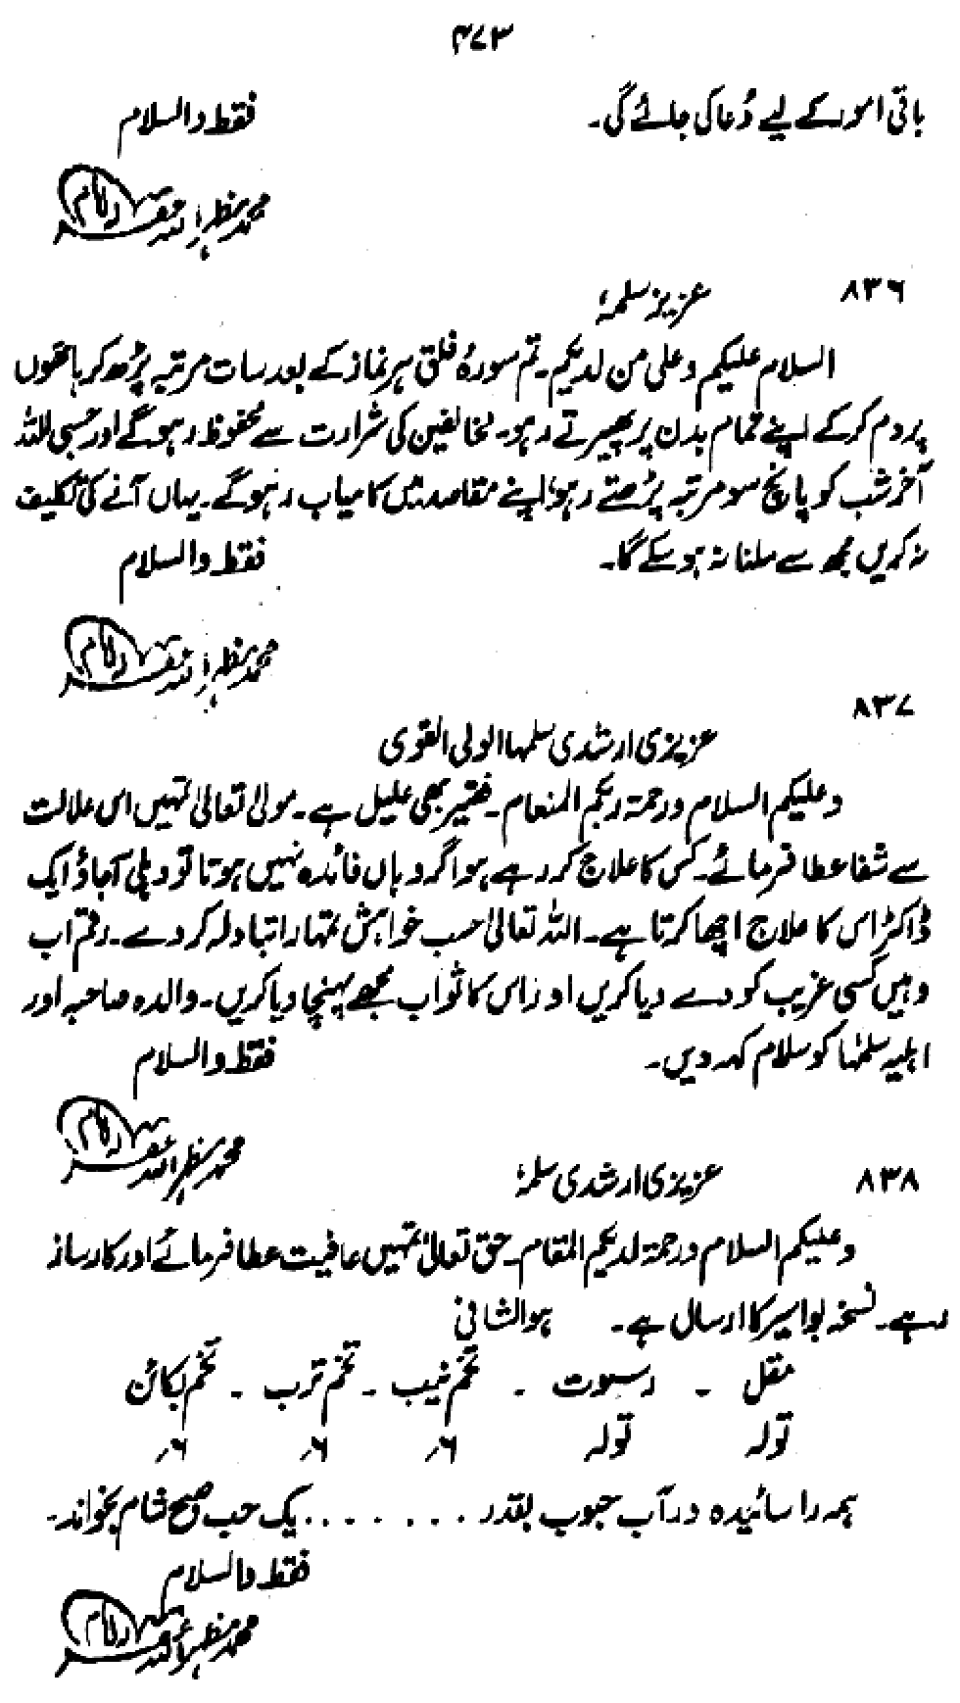 ۴۷۳
باقی امور کے لیے دُعا کی جائے گی۔ فقط والسلام
محمد مظہر اللہ غفرلہ امام
۸۳۶
عزیز سلمہٗ
السلام علیکم وعلی من لدیکم۔ تم سورۂ فلق ہر نماز کے بعد سات مرتبہ پڑھ کر ہاتھوں
پر دم کر کے اپنے تمام بدن پر پھیرتے رہو۔ مخالفین کی شرارت سے محفوظ رہو گے اور حسبی اللہ
آخر شب کو پانچ سو مرتبہ پڑھتے رہو، اپنے مقاصد میں کامیاب رہو گے۔ یہاں آنے کی تکلیف
نہ کریں مجھ سے ملنا نہ ہو سکے گا۔ فقط والسلام
محمد مظہر اللہ غفرلہ امام
۸۳۷
عزیزی ارشدی سلمہا الولی القوی
وعلیکم السلام ورحمۃ ربکم المنعام۔ فقیر بھی علیل ہے۔ مولیٰ تعالیٰ تمہیں اس علالت
سے شفا عطا فرمائے۔ کس کا علاج کر رہے ہو اگر وہاں فائدہ نہیں ہوتا تو دہلی آجاؤ ایک
ڈاکٹر اس کا علاج اچھا کرتا ہے۔ اللہ تعالیٰ حسب خواہش تمہارا تبادلہ کر دے۔ رقم اب
وہیں کسی غریب کو دے دیا کریں اور اس کا ثواب مجھے پہنچا دیا کریں۔ والدہ صاحبہ اور
اہلیہ سلمہا کو سلام کہہ دیں۔ فقط والسلام
محمد مظہر اللہ غفرلہ امام
۸۳۸
عزیزی ارشدی سلمہٗ
وعلیکم السلام ورحمۃ لدیکم المقام۔ حق تعالیٰ تمہیں عافیت عطا فرمائے اور کارساز
رہے۔ نسخہ بواسیر کا ارسال ہے۔ ہوالشافی
مقل ۔ رسوت ۔ تخم نیب ۔ تخم ترب ۔ تخم بکائن
تولہ تولہ ۶؍ ۶؍ ۶؍
ہمہ را سائیدہ در آب حبوب بقدر . . . . . . . یک حب صبح شام بخواند۔
فقط والسلام
محمد مظہر اللہ غفرلہ امام